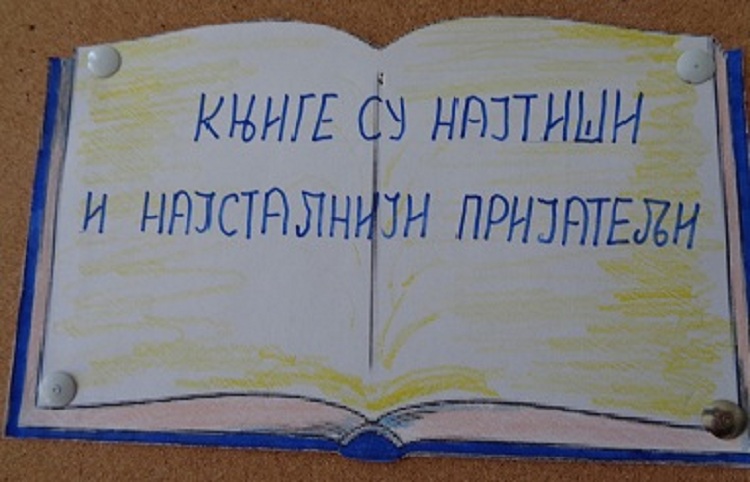 КЊИГЕ СУ НАЈТИШИ
И НАЈСТАЛНИЈИ ПРИЈАТЕЉИ